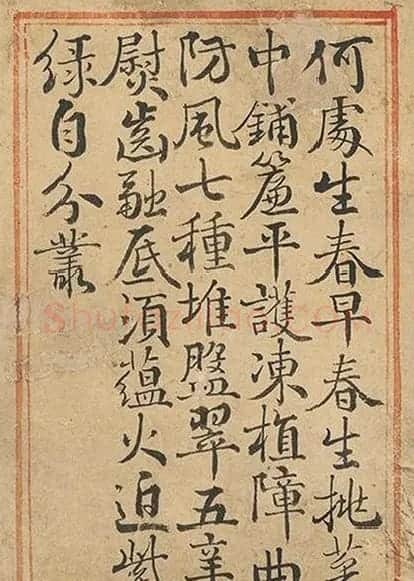 何處生春早春生挑菜
中鋪簾平護凍植障曲
防風七種堆盤翠五辛
熨齒融底須蘊火迫紫
綠自分叢